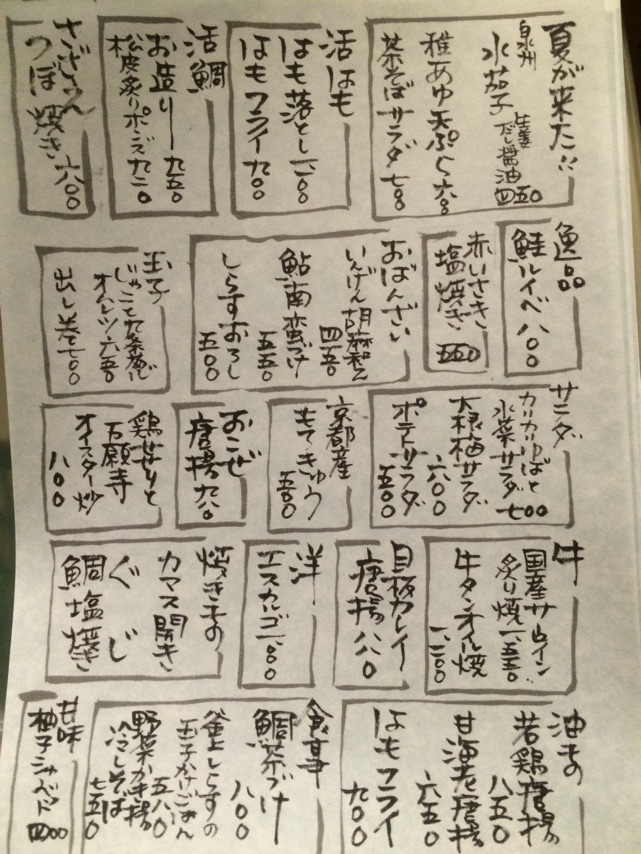 夏が来た!!
泉州
水茄子 生姜だし醤油 四五〇
稚あゆ天ぷら 六八〇
茶そばサラダ 七八〇
活はも
はも落とし
はもフライ 九〇〇
活鯛
お造り 九五〇
松皮炙りポンズ
さざえの
つぼ焼き 六〇〇
逸品
鮭ルイベ 八〇〇
赤いさき
塩焼き 五五〇
おばんざい
いんげん胡麻和え 四五〇
鮎南蛮づけ 五五〇
しらすおろし 五〇〇
玉子
じゃこと九条ねぎ
オムレツ 六五〇
出し巻 七〇〇
サラダ
カリカリゆばと
水菜サラダ 七〇〇
大根梅サラダ 六〇〇
ポテトサラダ 五〇〇
京都産
もてきゅう 五〇〇
おこぜ
唐揚 九八〇
鶏ササリと
万願寺
オイスター炒 八〇〇
牛
国産サーロイン
炙り焼 一五五〇
牛タンオイル焼 一、二〇〇
目板カレイ
唐揚 八八〇
洋
エスカルゴ 一〇〇〇
焼き的
カマス開き
ぐじ
鯛塩焼き
油もの
若鶏唐揚 八五〇
甘海老唐揚 六五〇
はもフライ 九〇〇
食事
鯛茶づけ 八〇〇
釜上しらすの
玉子かけごはん 五八〇
野菜かき揚
冷しそば 七五〇
甘味
柚子シャーベット 四〇〇